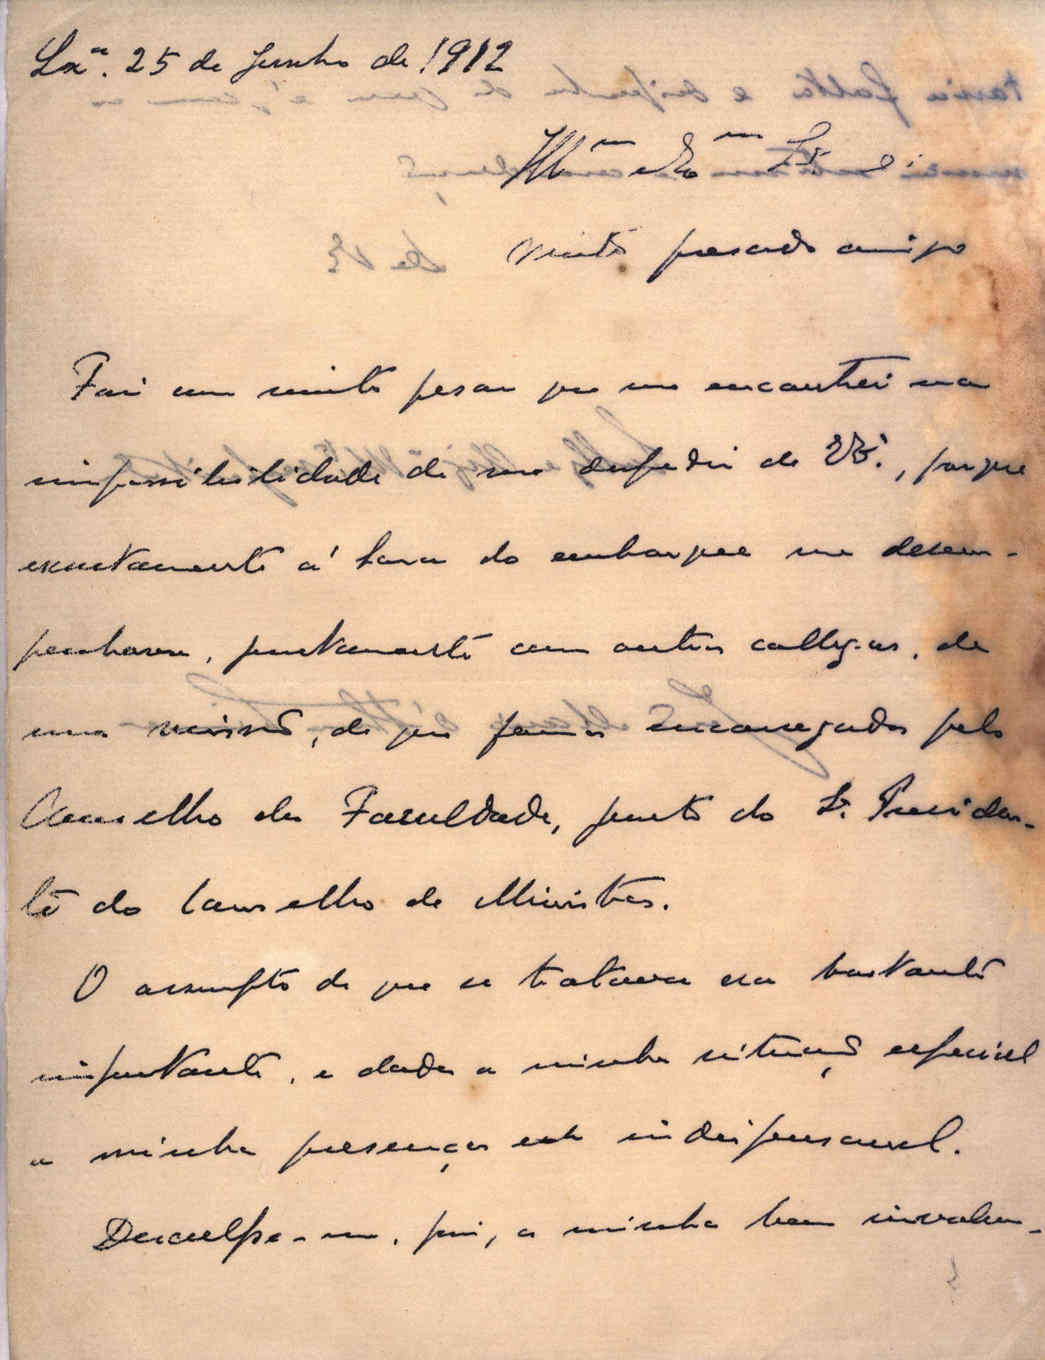 Lxª. 25 de Junho de 1912
Illmo e Exmo Sr.
Muito presado amigo
Foi com muito pesar que me encontrei na
impossibilidade de me despedir de V. Ex.ª, porque
exactamente á hora do embarque me desem-
penhava, juntamente com outros collegas, de
uma missão, de que fomos encarregados pelo
Conselho da Faculdade, junto do Sr. Presiden-
te do Conselho de Ministros.
O assumpto de que se tratava era bastante
importante, e dada a minha situação especial
a minha presença era indispensavel.
Desculpe-me, pois, a minha bem involun-